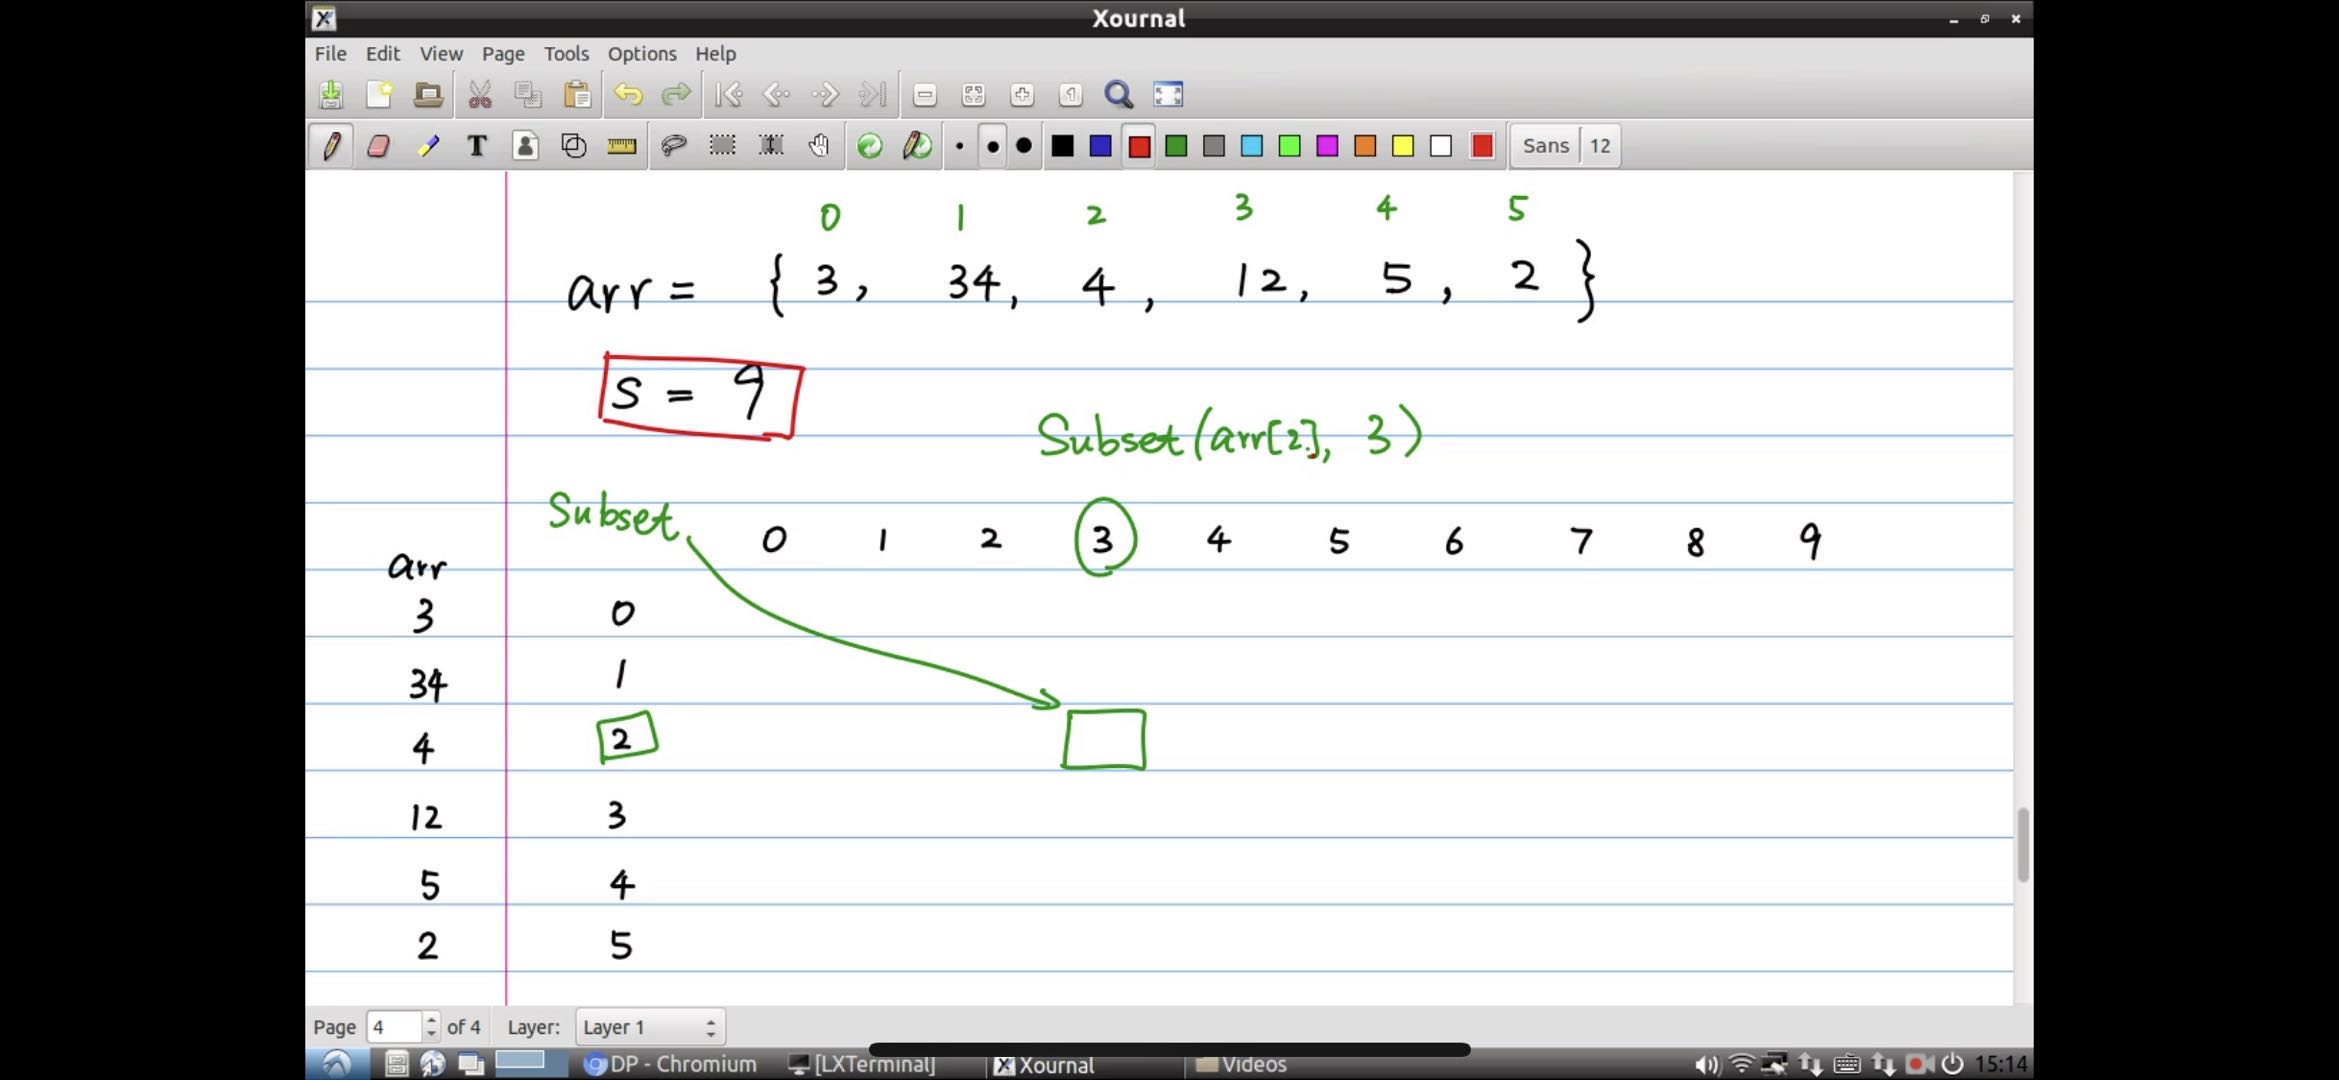 Xournal
File Edit View Page Tools Options Help
T Sans 12
0 1 2 3 4 5
arr = { 3, 34, 4, 12, 5, 2 }
S = 9
Subset(arr[2], 3)
Subset
0 1 2 3 4 5 6 7 8 9
arr
3 0
34 1
4 2
12 3
5 4
2 5
Page 4 of 4 Layer: Layer 1
DP - Chromium [LXTerminal] Xournal Videos 15:14